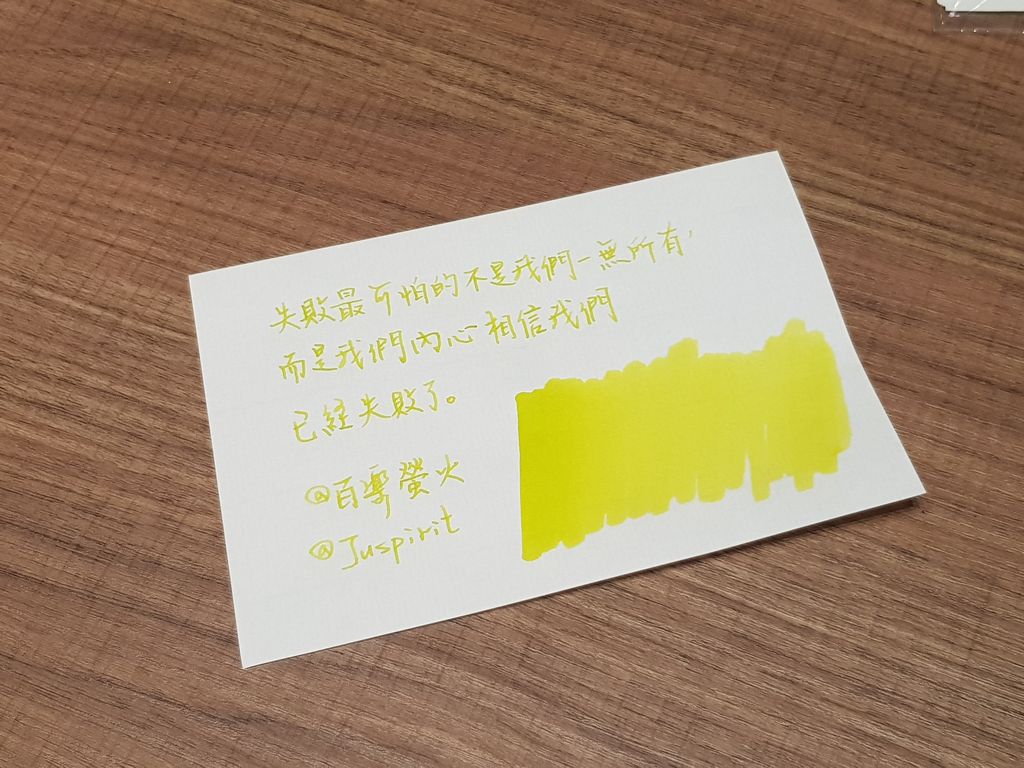 失敗最可怕的不是我們一無所有，
而是我們內心相信我們
已經失敗了。
@百樂螢火
@Juspirit